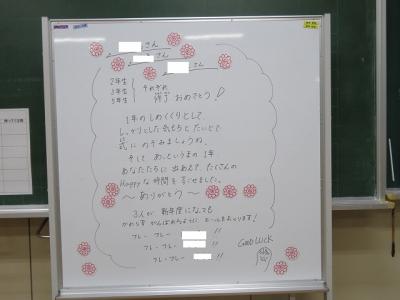 さん
さん
さん
2年生
3年生
5年生
それぞれ
修了 おめでとう!
1年のしめくくりとして
しっかりとした気もちとたいどで
式にのぞみましょうね。
そして あっというまの1年
あなたたちに出会えて、たくさんの
Happyな時間を すごせました。
〜ありがとう〜
3人が 新年度になっても
エールをおくります!
フレーフレー !!
フレーフレー !!
フレーフレー !!
Good Luck